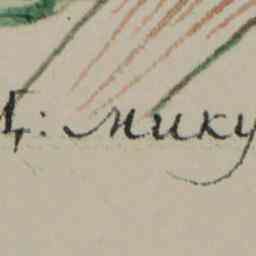 : мику